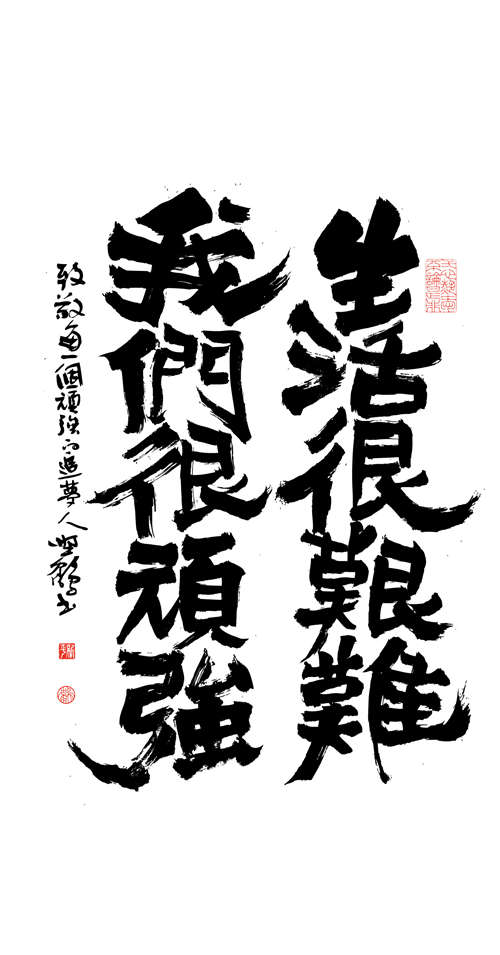 生活很艱難
我們很頑強
致敬每一個頑強的追夢人